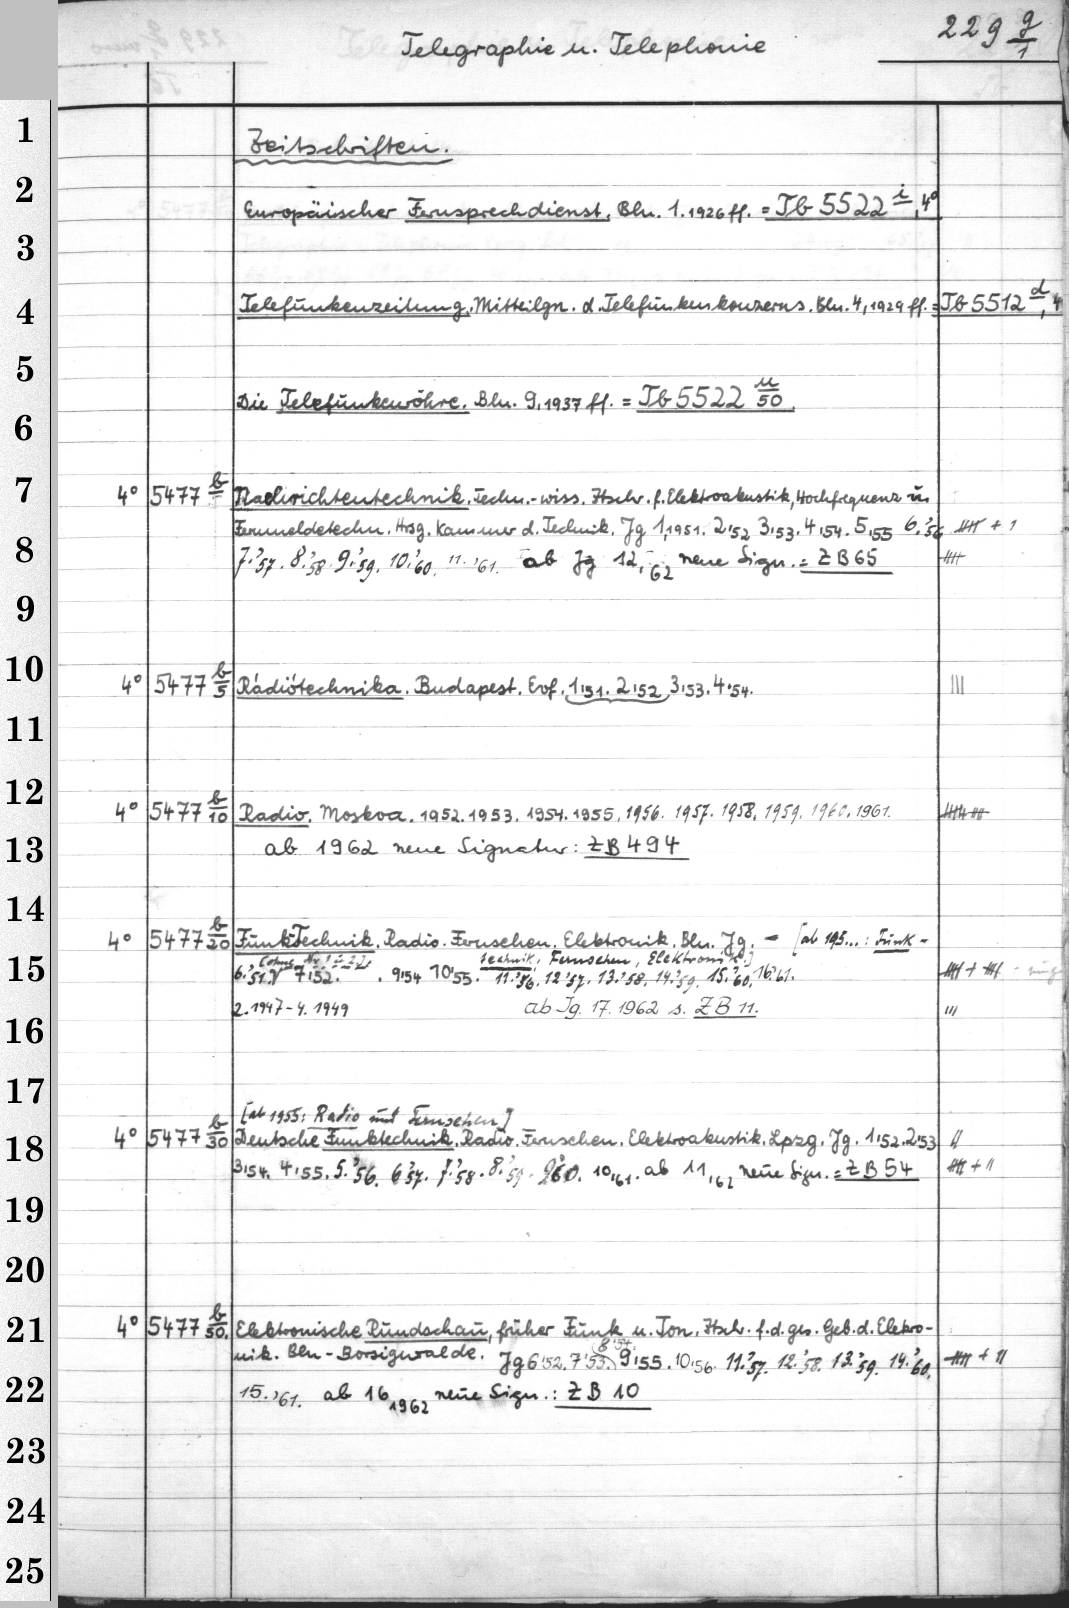 Telegraphie u. Telephonie
229 g/1
Zeitschriften.
Europäischer Fernsprechdienst, Bln. 1.1926 ff. = Tb 5522 i, 4°
Telefunkenzeitung, Mitteilgn. d. Telefunkenkonzerns. Bln. 4, 1929 ff. = Tb 5512 d, 4
Die Telefunkenröhre. Bln. 9, 1937 ff. = Tb 5522 u/50.
4° 5477 b Nachrichtentechnik. Techn.-wiss. Ztschr. f. Elektroakustik, Hochfrequenz u.
Fernmeldetechn. Hrsg. Kammer d. Technik. Jg 1,1951. 2,'52 3,'53. 4,'54. 5,'55 6.'56 + 1
7.'57. 8.'58. 9.'59. 10.'60. 11.'61. ab Jg 12,'62 neue Sign.: ZB65
4° 5477 b/5 Rádiótechnika. Budapest. Evf. 1,'51. 2,'52, 3,'53. 4,'54. |||
4° 5477 b/10 Radio. Moskva. 1952. 1953. 1954. 1955. 1956. 1957. 1958. 1959. 1960. 1961.
ab 1962 neue Signatur: ZB494
4° 5477 b/20 FunkTechnik. Radio. Fernsehen. Elektronik. Bln. Jg. – [ab 195...: Funk-
technik, Fernsehen, Elektronik.]
6.'51. 7,'52. . 9,'54 10,'55. 11.'56. 12.'57. 13.'58. 14.'59. 15.'60, 16.'61.
2.1947-4.1949 ab Jg. 17. 1962 s. ZB 11. |||
[ab 1955: Radio und Fernsehen]
4° 5477 b/30 Deutsche Funktechnik. Radio. Fernsehen. Elektroakustik. Lpzg. Jg. 1,'52. 2,'53 ||
3,'54. 4,'55. 5.'56. 6.'57. 7.'58. 8.'59. 9.'60. 10,'61. ab 11,'62 neue Sign.: ZB54 + ||
4° 5477 b/50. Elektronische Rundschau, früher Funk u. Ton. Ztschr. f. d. ges. Geb. d. Elektro-
nik. Bln-Borsigwalde. Jg 6,'52. 7,'53. 8,'54. 9,'55. 10,'56. 11.'57. 12.'58. 13.'59. 14.'60. + ||
15.'61. ab 16,1962 neue Sign.: ZB 10
1
2
3
4
5
6
7
8
9
10
11
12
13
14
15
16
17
18
19
20
21
22
23
24
25